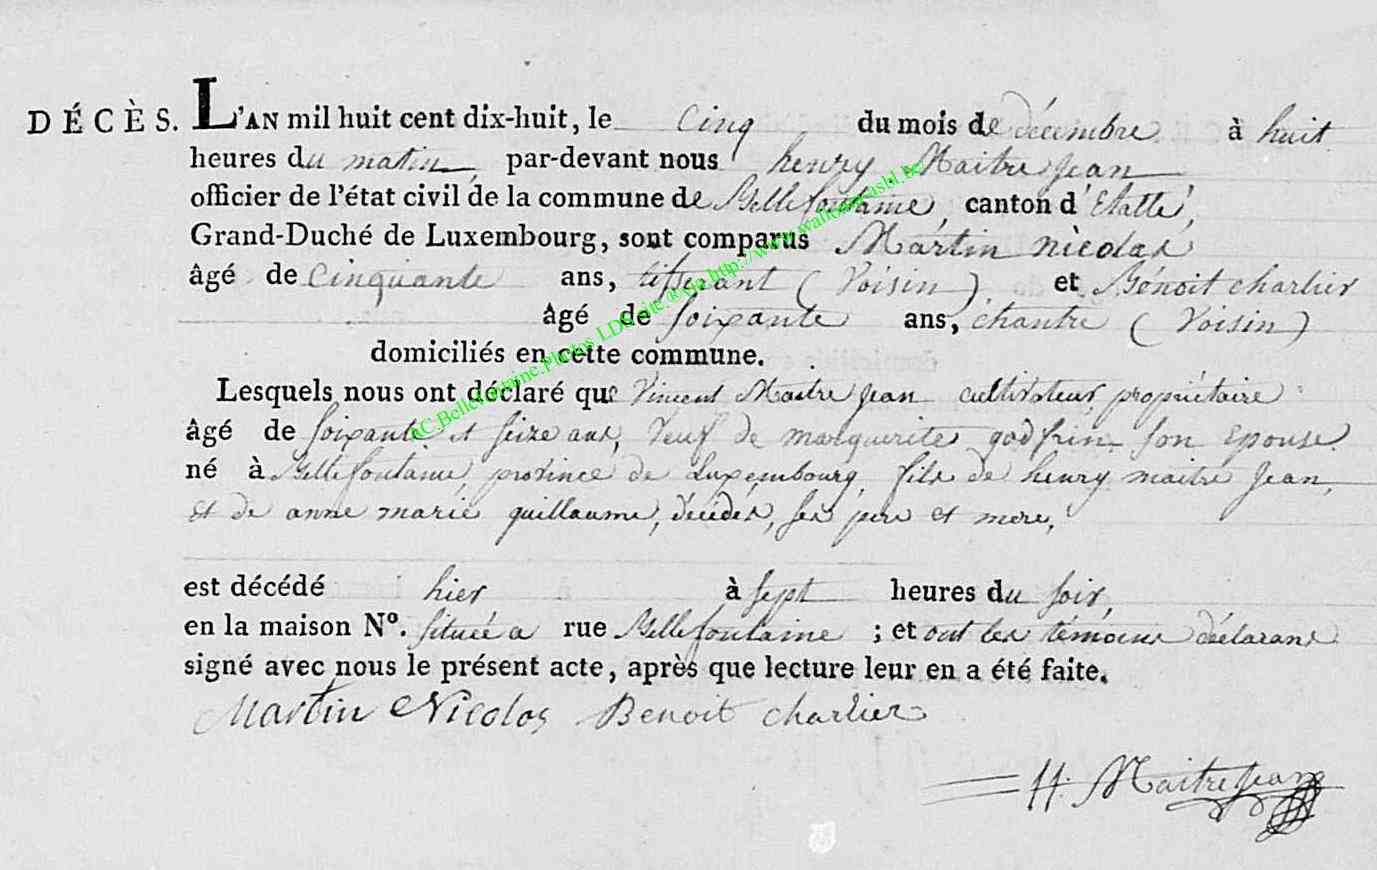 DÉCÈS. L'AN mil huit cent dix-huit, le cinq du mois de décembre à huit
heures du matin, par-devant nous henry Maitre Jean
officier de l'état civil de la commune de Bellefontaine, canton d'Etalle,
Grand-Duché de Luxembourg, sont comparus Martin nicolas
âgé de Cinquante ans, tisserant (Voisin) et Bénoit charlier
âgé de soixante ans, chantre (Voisin)
domiciliés en cette commune.
Lesquels nous ont déclaré que Vincent Maitre Jean cultivateur propriétaire
âgé de soixante et seize ans, Veuf de marguerite godfrin son Epouse
né à Bellefontaine, province de Luxembourg, fils de henry maitre Jean,
et de anne marie guillaume, décédés, ses pere et mere,
est décédé hier à sept heures du soir,
en la maison N°. située a rue Bellefontaine ; et ont les témoins déclarans
signé avec nous le présent acte, après que lecture leur en a été faite.
Martin Nicolas Benoit charlier
H. Maitrejean